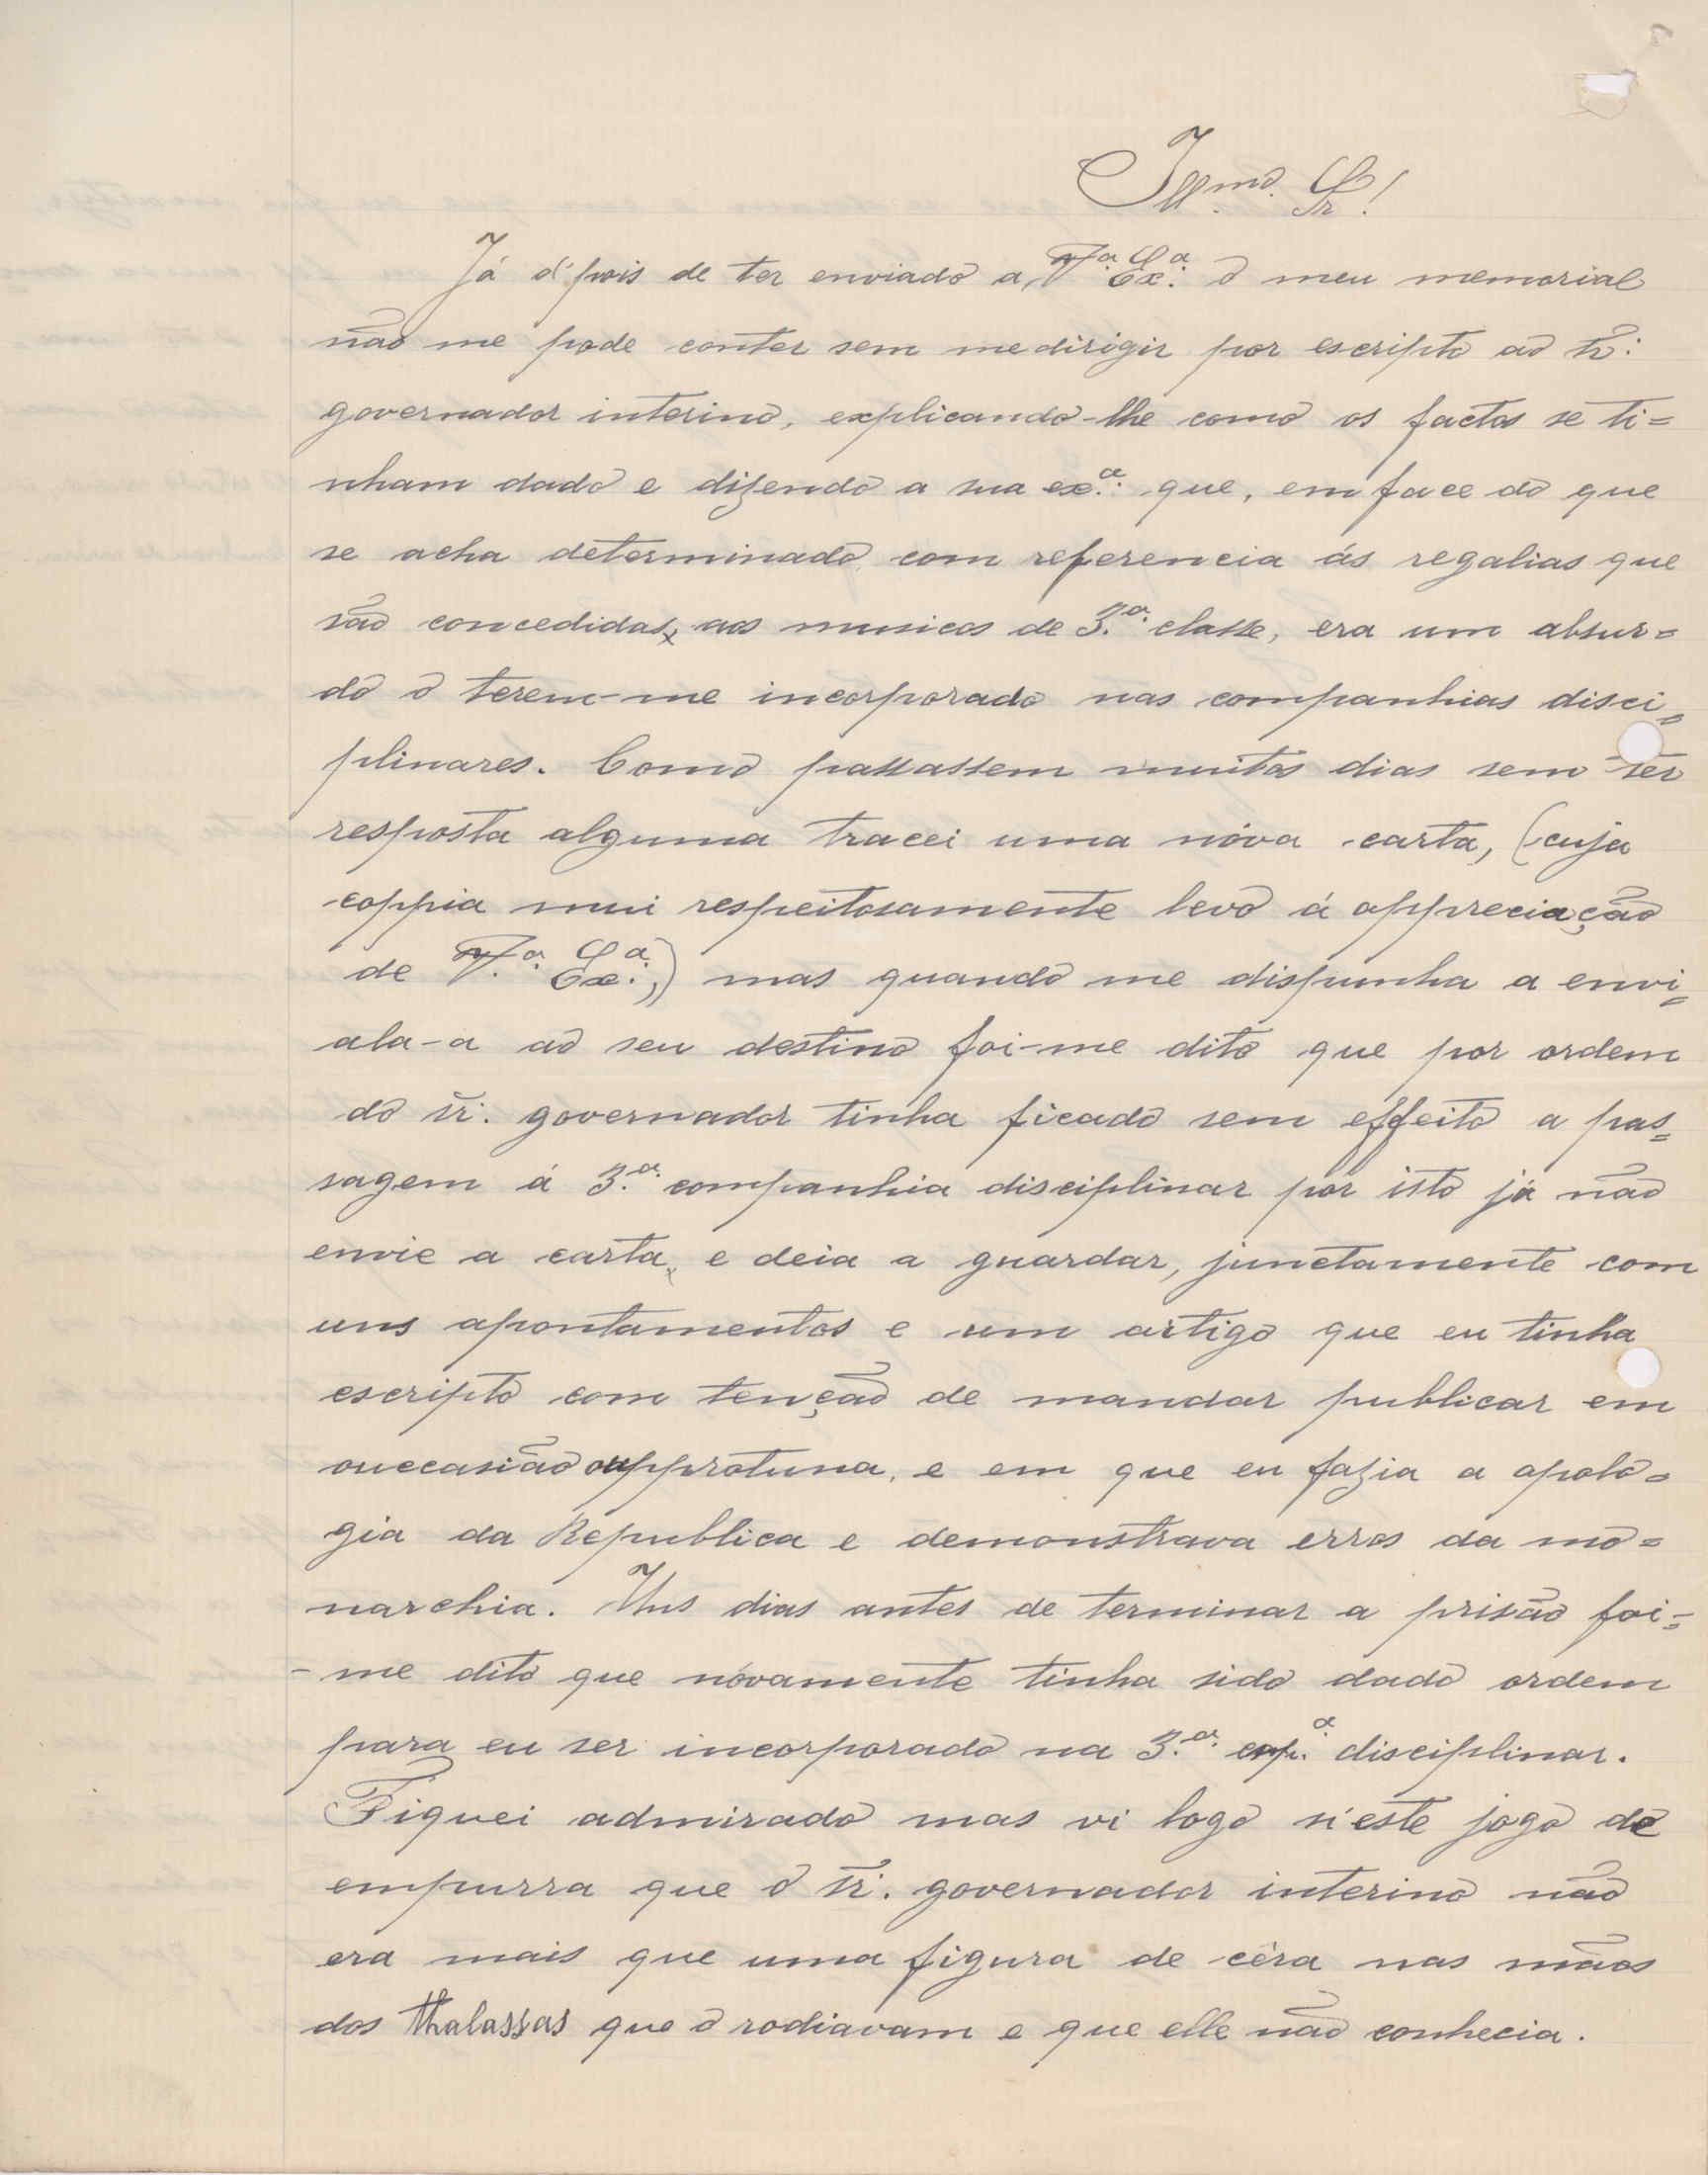 Illmo. Sr!
Já d'pois de ter enviado a Va. Exa. o meu memorial
não me pode conter sem me dirigir por escripto ao sr:
governador interino, explicando-lhe como os factos se ti=
nham dado e dizendo a sua exa. que, em face do que
se acha determinado com referencia ás regalias que
são concedidas, aos musicos de 3.a classe, era um absur=
do o terem-me incorporado nas companhias disci=
plinares. Como passassem muitos dias sem ter
resposta alguma tracei uma nóva carta, (cuja
coppia mui respeitosamente levo á appreciação
de Va. Exa.,) mas quando me dispunha a envi=
ala-a ao seu destino foi-me dito que por ordem
do sr. governador tinha ficado sem effeito a pas=
sagem á 3.a companhia disciplinar por isto já não
envie a carta, e deia a guardar, junctamente com
uns apontamentos e um artigo que eu tinha
escripto com tenção de mandar publicar em
ouccasião oupprotuna, e em que eu fazia a apolo=
gia da Republica e demonstrava erros da mo=
narchia. Uns dias antes de terminar a prisão foi=
-me dito que nóvamente tinha sido dado ordem
para eu ser incorporado na 3.a cop.a disciplinar.
Fiquei admirado mas vi logo n'este jogo de
empurra que o sr. governador interino não
era mais que uma figura de cêra nas mãos
dos Thalassas que o rodiavam e que elle não conhecia.